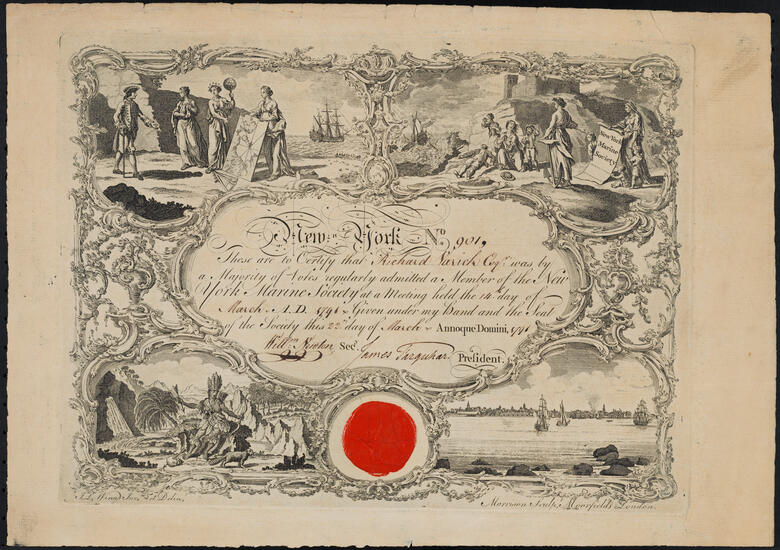 New York
Marine
Society
New York No 901.
These are to Certify that Richard Varick Esqr. was by
a Majority of Votes regularly admitted a Member of the New
York Marine Society at a Meeting held the 14 day of
March A.D. 1791 Given under my Hand and the Seal
of the Society this 22d day of March Annoque Domini, 1791
Willm Newton Secy. James Farquhar President.
Invt. et Delin.
Morrison Sculp. Moorfields London.